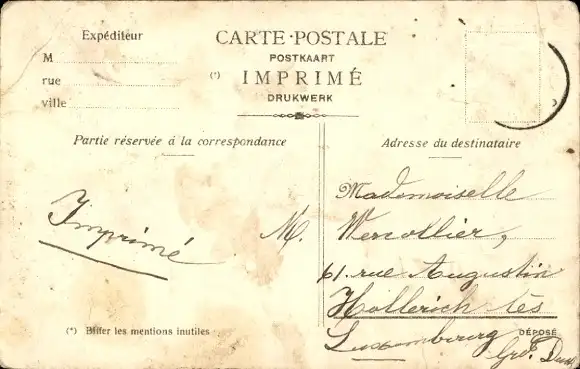 Expéditeur
M
rue
ville
CARTE·POSTALE
POSTKAART
(*) IMPRIMÉ
DRUKWERK
Partie réservée à la correspondance
Imprimé
(*) Biffer les mentions inutiles
Adresse du destinataire
Mademoiselle
M. Wercollier,
61. rue Augustin
Hollerich lès
Luxembourg
DÉPOSÉ
Gr. Duché